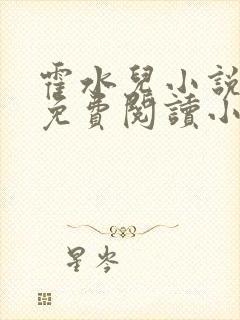 霍水兒小說
免費閱讀小
星岑